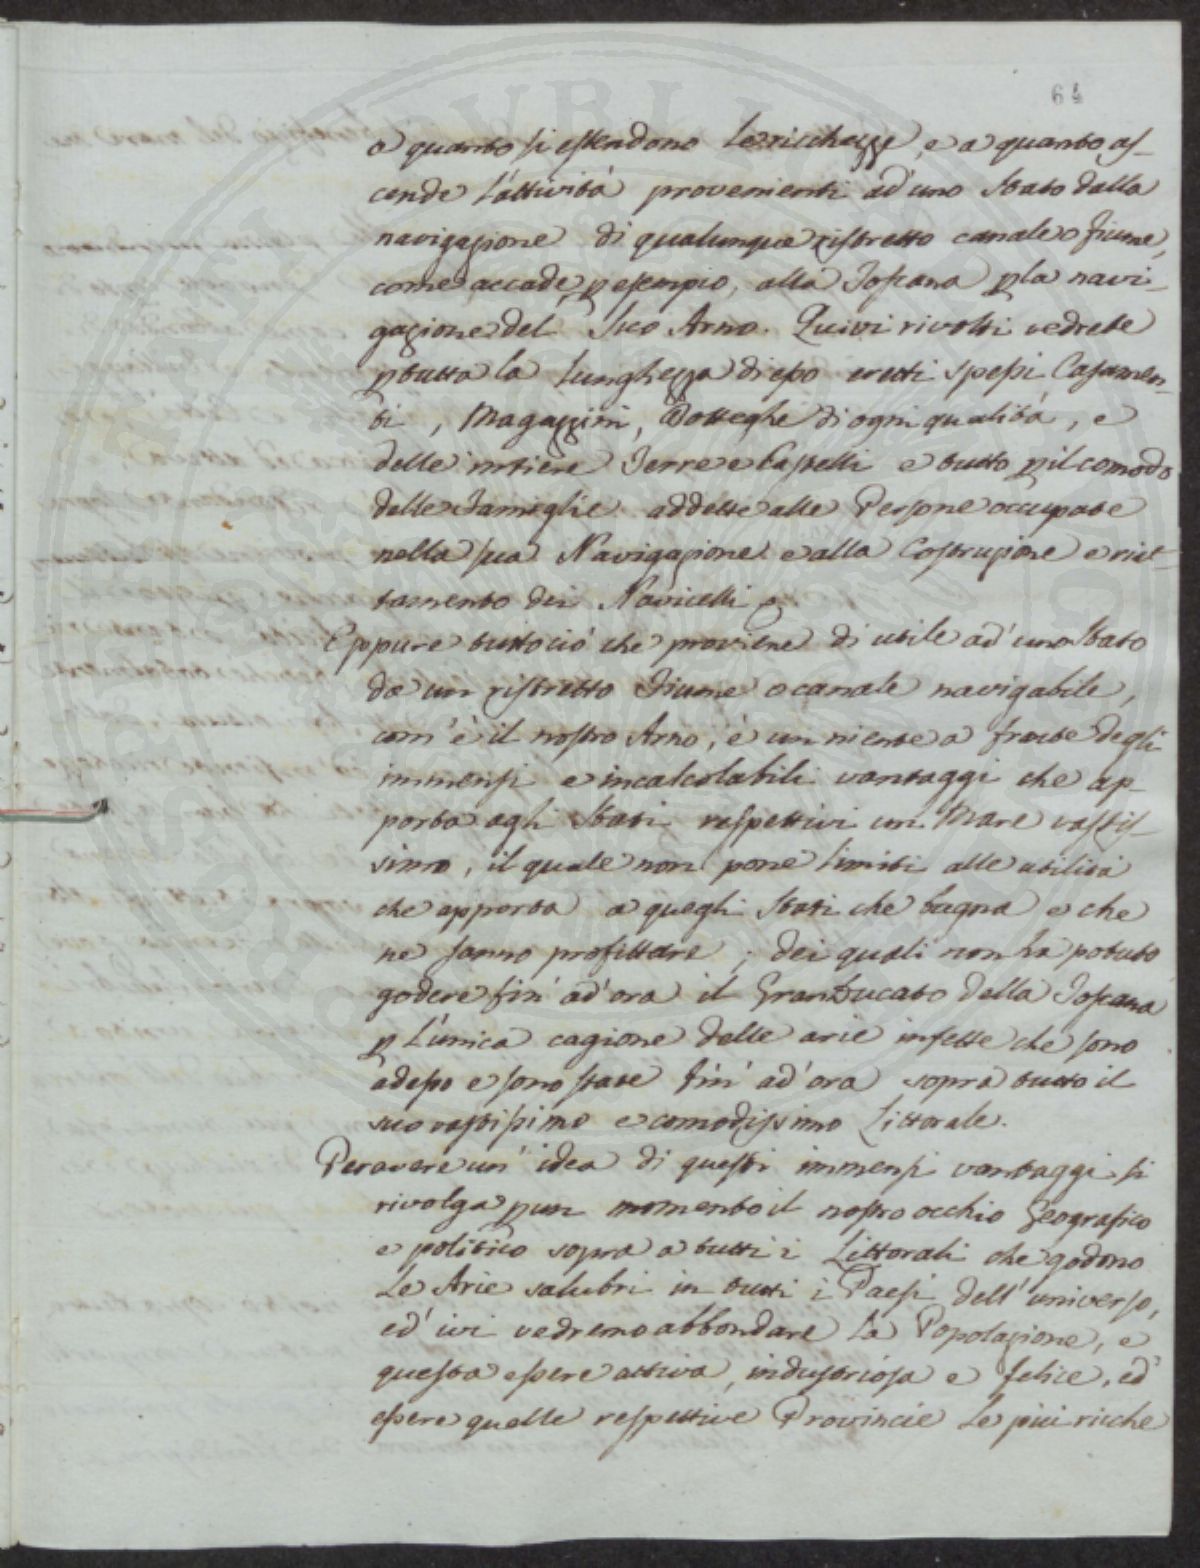 64
a quanto si estendono le ricchezze, e a quanto as-
cende l'attività provenienti ad'uno Stato dalla
navigazione di qualunque ristretto canale o fiume,
come accade, p esempio, alla Toscana p la navi-
gazione del suo Arno. Quivi rivolti vedrete
p tutta la lunghezza di esso eretti spessi Casamen-
ti, Magazzini, Botteghe di ogni qualità, e
delle intiere Terre e Castelli e tutto p il comodo
delle Famiglie addette alle Persone occupate
nella sua Navigazione e alla Costruzione e riat-
tamento dei Navicelli
Eppure tuttociò che proviene di utile ad'uno Stato
da un ristretto Fiume o canale navigabile,
com'è il nostro Arno, è un niente a fronte degli
immensi e incalcolabili vantaggi che ap-
porta agli Stati respettivi un Mare vastis-
simo, il quale non pone limiti alle utilità
che apporta a quegli Stati che bagna e che
ne sanno profittare; dei quali non ha potuto
godere fin'ad'ora il GranDucato della Toscana
p l'unica cagione delle arie infette che sono
adesso e sono state fin'ad'ora sopra tutto il
suo vastissimo e comodissimo Littorale.
Per avere un'idea di questi immensi vantaggi si
rivolga p un momento il nostro occhio Geografico
e politico sopra a tutti i Littorali che godono
le Arie salubri in tutti i Paesi dell'universo,
ed'ivi vedremo abbondare la Popolazione, e
questa essere attiva, industriosa e felice, ed
essere quelle respettive Provincie le più ricche